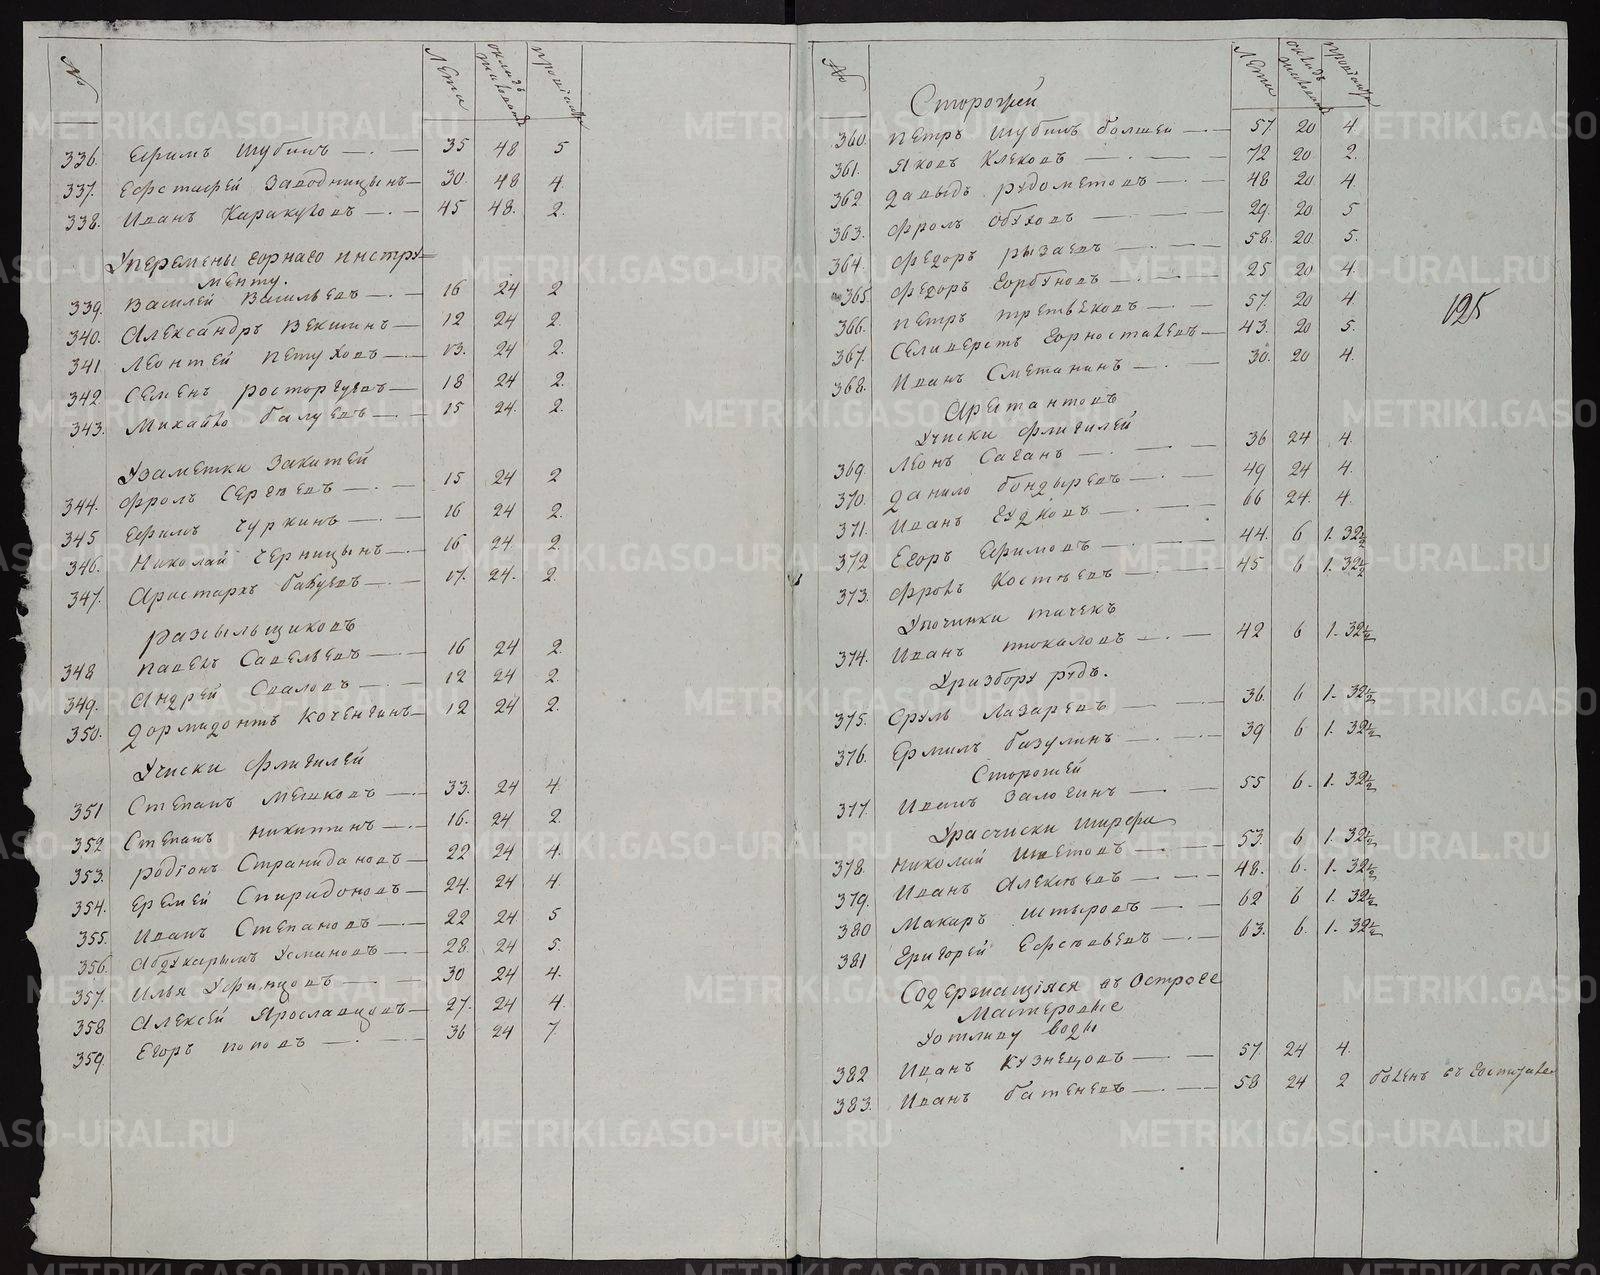 № Лета окладъ жалованья провіанту
336. Ефимъ Шубинъ 35 48 5
337. Ефстафей Заводницынъ 30. 48 4.
338. Иванъ Каракуловъ 45 48. 2.
Уперемены горнаго инстру=
менту.
339. Василей Васильевъ 16 24 2
340. Александръ Векшинъ 12 24 2.
341 Леонтей Петуховъ 13. 24 2.
342. Семенъ Расторгуевъ 18 24 2.
343. Михайло Балуевъ 15 24. 2.
Узаметки Закатей
344. Фролъ Сергеевъ 15 24 2
345 Ефимъ Чуркинъ 16 24 2.
346. Николай Черницынъ 16 24. 2.
347. Аристархъ Балуевъ 17. 24. 2.
Разсыльщиковъ
348 Павелъ Савельевъ 16 24 2.
349. Андрей Сваловъ 12 24 2.
350. Дормидонтъ Коченгинъ 12 24 2.
Учиски флигилей
351 Степанъ Мешковъ 33. 24 4
352 Степанъ Никитинъ 16. 24 2
353. Родіонъ 22 24 4.
354. Еремей Спиридоновъ 24. 24 4.
355. Иванъ Степановъ 22 24 5
356. Абдукарымъ Усмановъ 28. 24 5.
357. Илья Уфимцовъ 30 24 4.
358 Алексей Ярославцовъ 27. 24 4.
359. Егоръ Поповъ 36 24 7
№ Лета окладъ жалованья провіанту
Сторожей
360. Петръ Шубинъ болшей 57. 20 4.
361. Яковъ Клековъ 72 20 2.
362 Давыдъ Рудометовъ 48 20 4.
363. Фролъ Обуховъ 29. 20 5
364. Федоръ Рызаевъ 58. 20. 5.
365. Федоръ Горбуновъ 25 20 4.
366. Петръ Третьековъ 57. 20 4.
367. Селиверстъ Горносталевъ 43. 20 5.
368. Иванъ Сметанинъ 30. 20 4.
125
Арестантовъ
Учиски флигилей
369. Леонъ Саганъ 36 24 4.
370. Данило Бондыревъ 49 24 4.
371. Иванъ Гудковъ 66 24. 4.
372 Егоръ Ефимовъ 44. 6 1. 32½
373. Фролъ Костѣевъ 45 6 1. 32½
Упочинки тачекъ
374. Иванъ Тюкаловъ 42 6 1. 32½
Уразбору рудъ.
375. Сруль Лазаревъ 36. 6 1. 32½
376. Ермилъ Базулинъ 39 6 1. 32½
Сторожей
377. Иванъ Залогинъ 55 6. 1. 32½
Урасчиски ширфа
378. Николай 53. 6 1. 32½
379. Иванъ Алексѣевъ 48. 6. 1. 32½
380 Макаръ Штыровъ 62 6 1. 32½
381 Григорей Ефсѣевъ 63. 6. 1. 32½
Содержащіяся въ Остроге
Мастеровые
Уотливу воды
382 Иванъ Кузнецовъ 57. 24 4.
383. Иванъ Батеневъ 58 24 2 боленъ въ госпитале